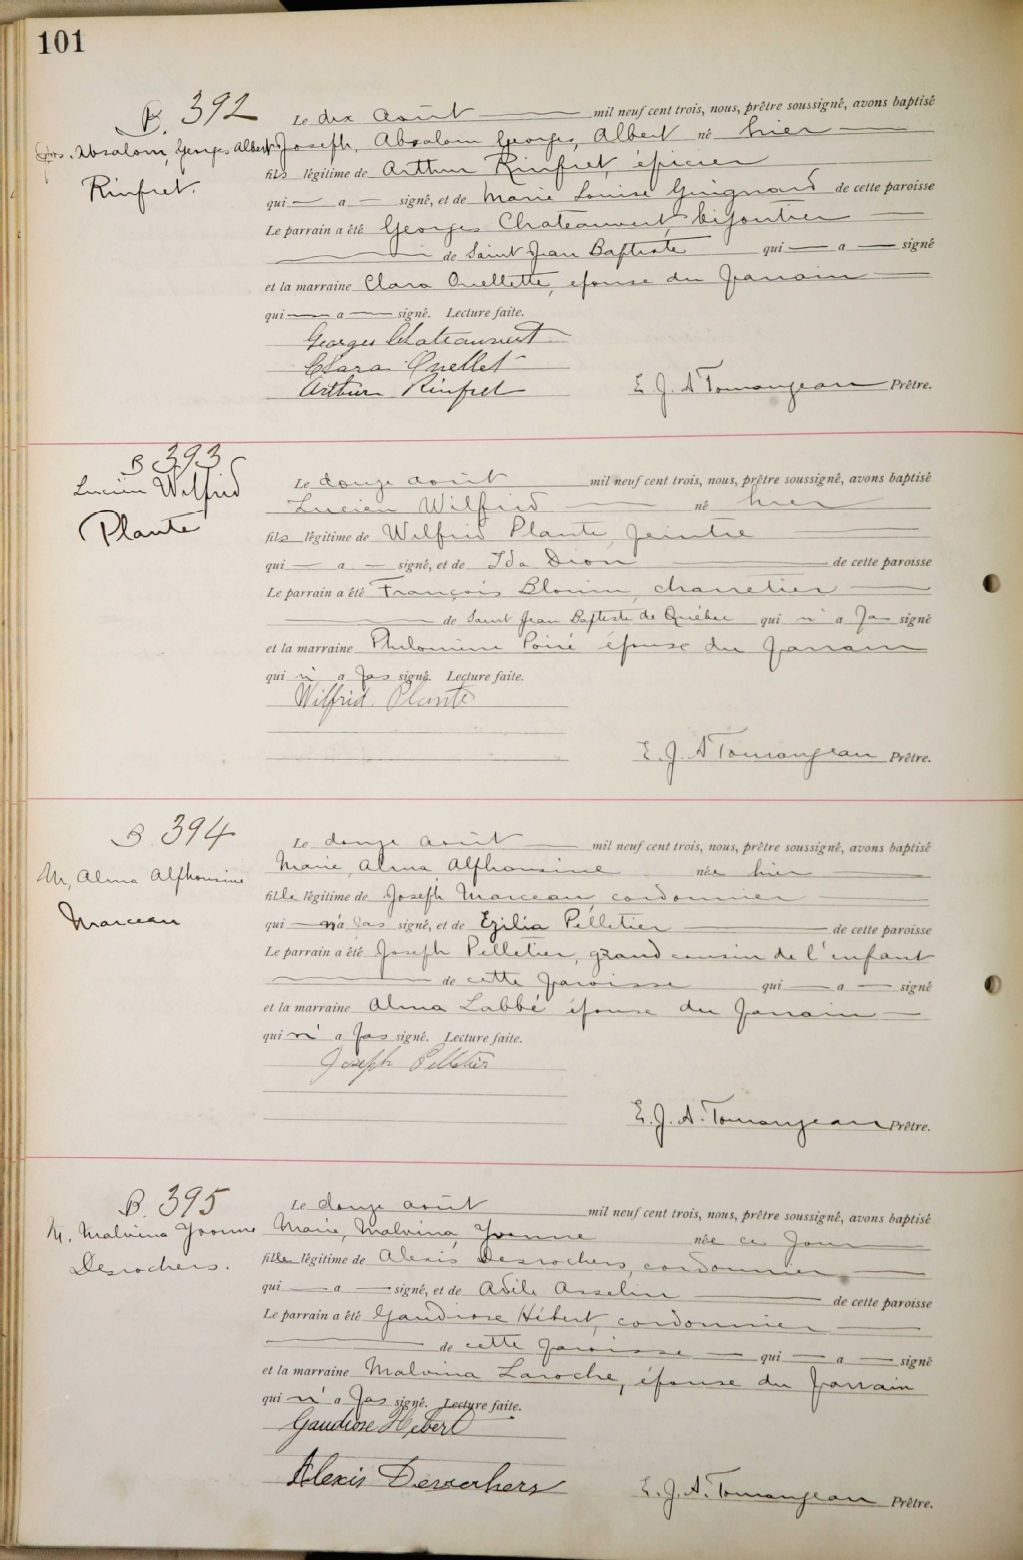 101
B. 392
Jos. Absalom, Georges Albert
Rinfret.
Le dix août mil neuf cent trois, nous, prêtre soussigné, avons baptisé
Joseph, Absalom Georges, Albert né hier
fils légitime de Arthur Rinfret, épicier
qui — a — signé, et de Marie Louise Guignard de cette paroisse
Le parrain a été Georges Chateauvert, bijoutier
de Saint Jean Baptiste qui — a — signé
et la marraine Clara Ouellette, épouse du parrain
qui — a — signé. Lecture faite.
Georges Chateauvert
Clara Ouellet
Arthur Rinfret
E. J. A Tourangeau Prêtre.
B 393
Lucien Wilfrid
Plante
Le douze août mil neuf cent trois, nous, prêtre soussigné, avons baptisé
Lucien Wilfrid né hier
fils légitime de Wilfrid Plante, peintre
qui — a — signé, et de Ida Dion de cette paroisse
Le parrain a été François Blouin, charretier
de Saint Jean Baptiste de Québec qui n' a pas signé
et la marraine Philomène Poiré épouse du parrain
qui n' a pas signé. Lecture faite.
Wilfrid Plante
E. J. A Tourangeau Prêtre.
B. 394
M, Alma Alphonsine
Marceau
Le douze août mil neuf cent trois, nous, prêtre soussigné, avons baptisé
Marie, Alma, Alphonsine née hier
fille légitime de Joseph Marceau, cordonnier
qui — n'a pas signé, et de Ezilia Pelletier de cette paroisse
Le parrain a été Joseph Pelletier, grand cousin de l'enfant
de cette paroisse qui — a — signé
et la marraine Alma Labbé épouse du parrain
qui n' a pas signé. Lecture faite.
Joseph Pelletier
E. J. A. Tourangeau Prêtre.
B. 395
M. Malvina Yvonne
Desrochers.
Le douze août mil neuf cent trois, nous, prêtre soussigné, avons baptisé
Marie, Malvina, Yvonne née ce jour
fille légitime de Alexis Desrochers, cordonnier
qui — a — signé, et de Adèle Asselin de cette paroisse
Le parrain a été Gaudiose Hébert, cordonnier
de cette paroisse — qui — a — signé
et la marraine Malvina Laroche, épouse du parrain
qui n' a pas signé. Lecture faite.
Gaudiose Hebert
Alexis Derochers
E. J. A. Tourangeau Prêtre.